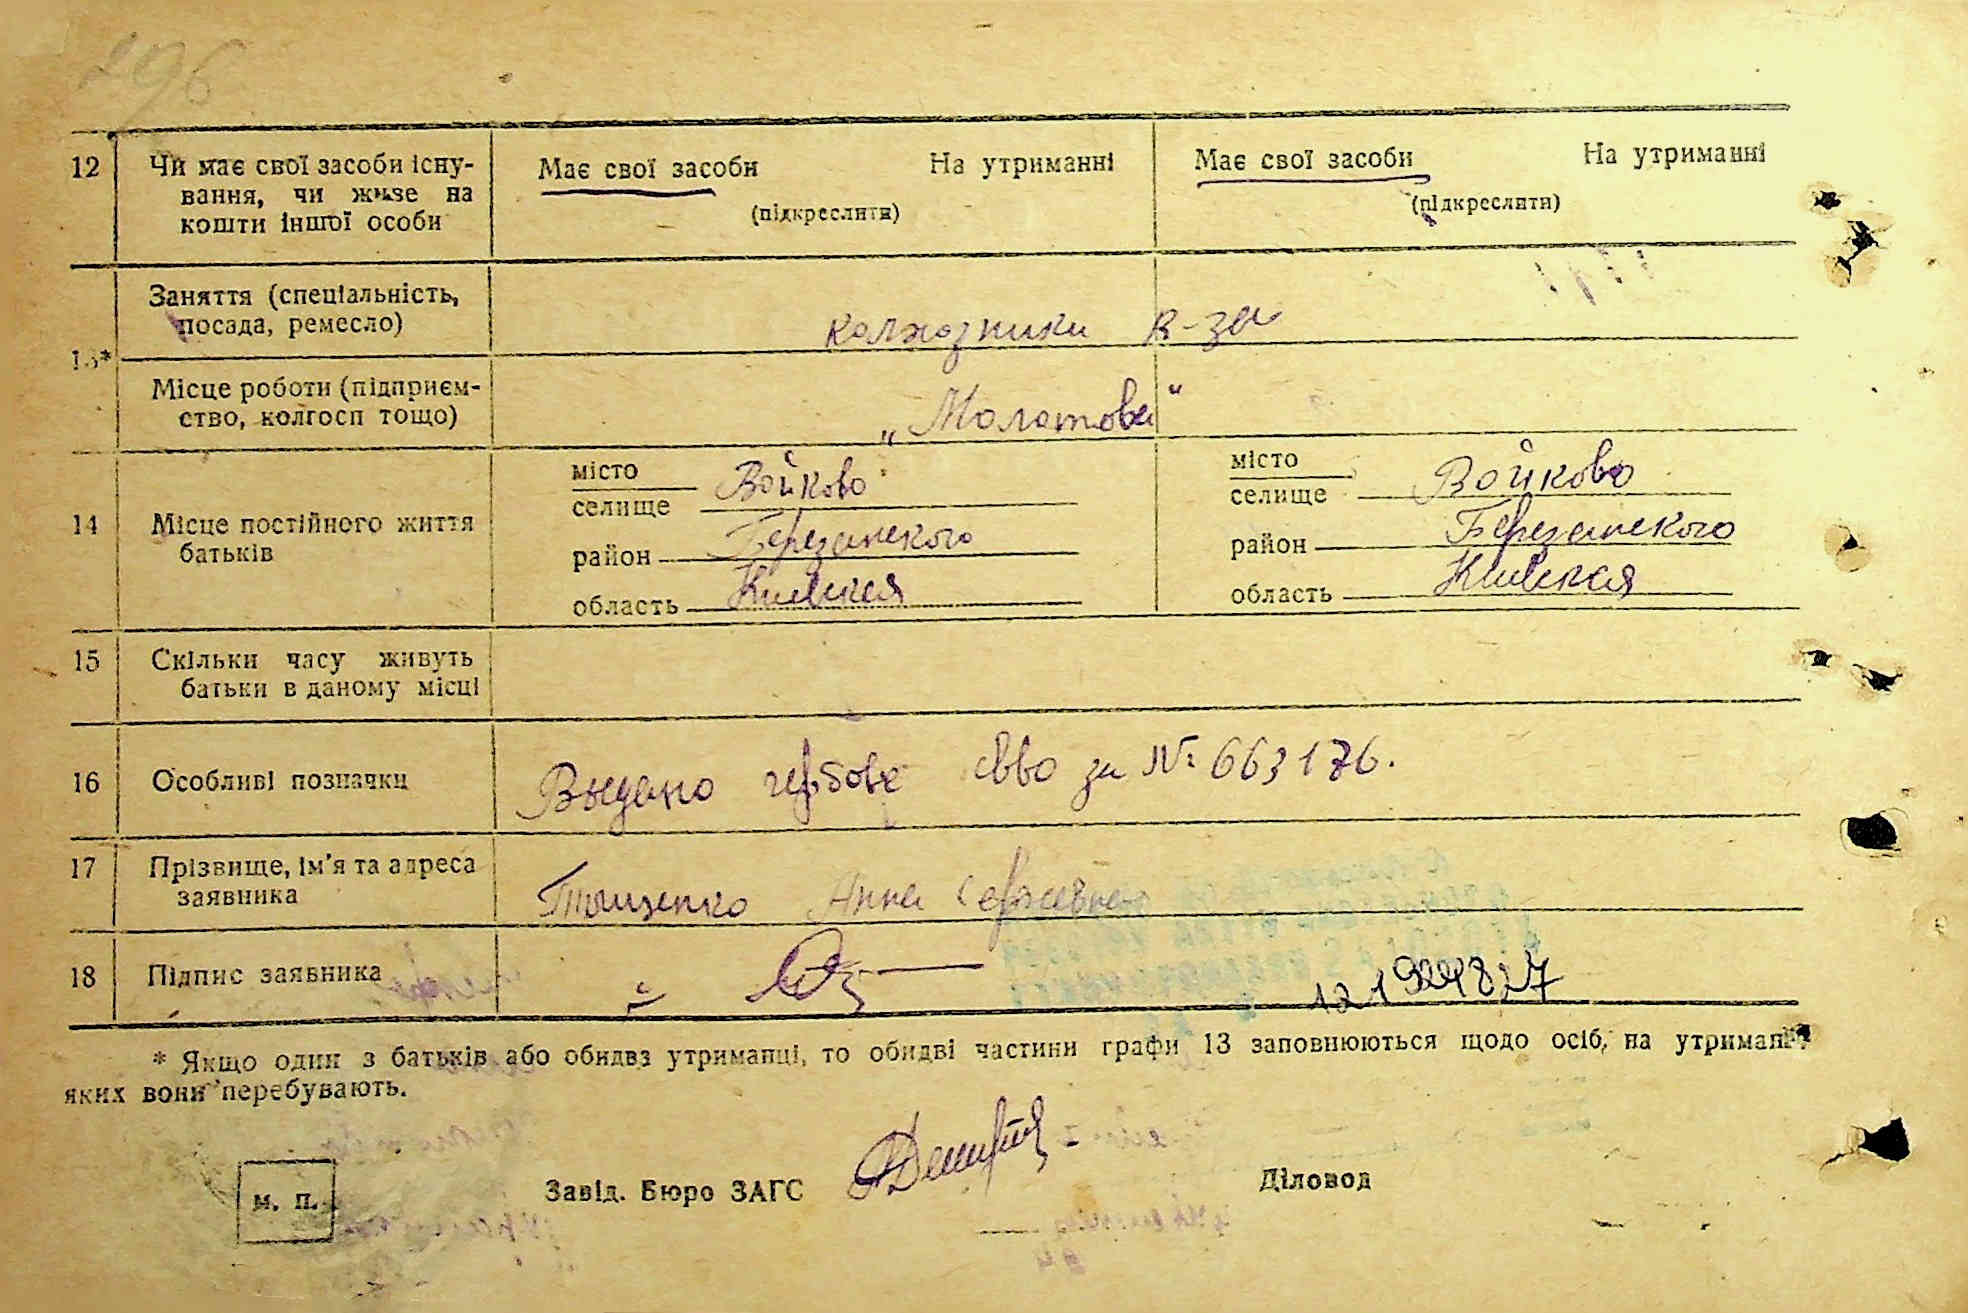 296
12 Чи має свої засоби існу- Має свої засоби На утриманні Має свої засоби На утриманні
вання, чи живе на (підкреслити) (підкреслити)
кошти іншої особи
Заняття (спеціальність,
посада, ремесло) колхозники к-за
13*
Місце роботи (підприєм-
ство, колгосп тощо) „Молотова"
місто Войково місто Войково
селище селище
14 Місце постійного життя
батьків
район Березанского район Березанского
область Киевская область Киевская
15 Скільки часу живуть
батьки в даному місці
16 Особливі позначки Выдано гербове св-во за № 663176.
17 Прізвище, ім'я та адреса
заявника Тыщенко Анна Сергеевна
18 Підпис заявника
* Якщо один з батьків або обидва утриманці, то обидві частини графи 13 заповнюються щодо осіб, на утриманні
яких вони перебувають.
М. П. Завід. Бюро ЗАГС Діловод